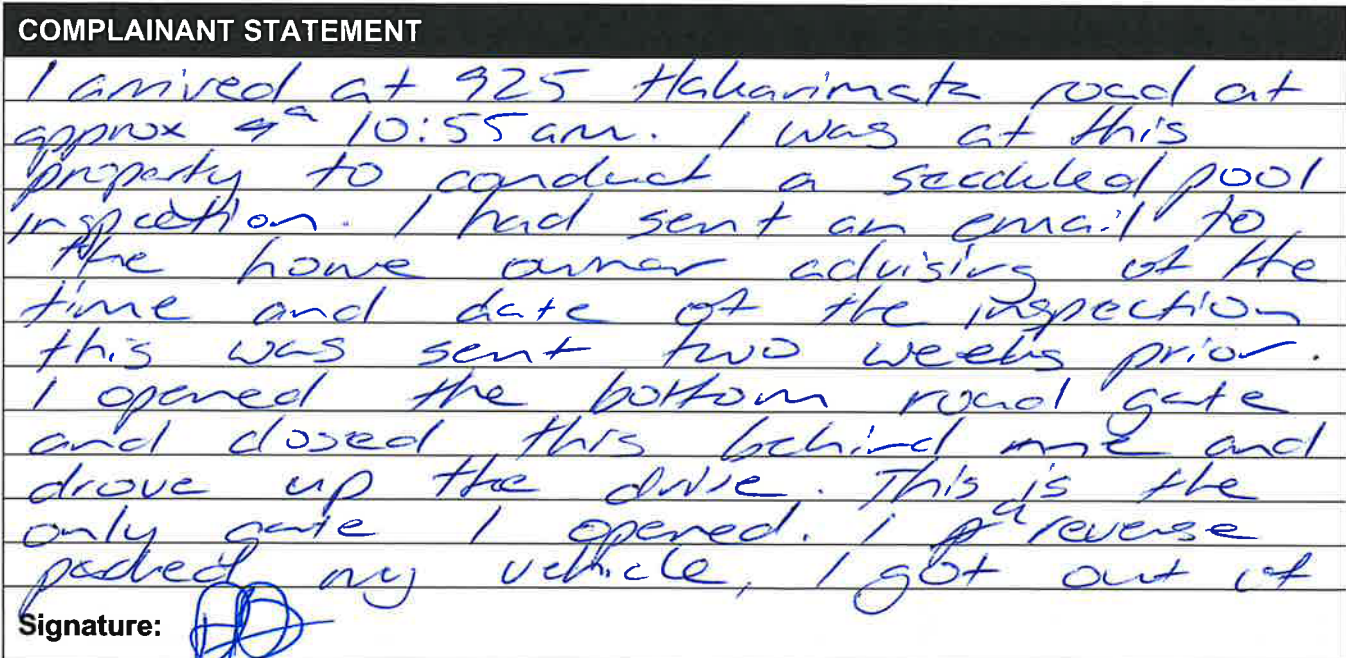 COMPLAINANT STATEMENT
I arrived at 925 Hakarimata road at
approx 10:55am. I was at this
property to conduct a secduled pool
inspection. I had sent an email to
the home owner advising of the
time and date of the inspection
this was sent two weeks prior.
I opened the bottom road gate
and closed this behind me and
drove up the drive. This is the
only gate I opened. I reverse
parked my vehicle, I got out of
Signature: